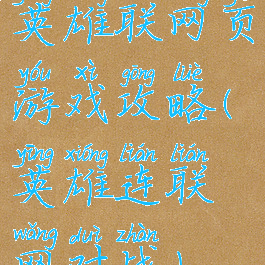 英雄联网页
yóu xì gōng lüè
游戏攻略(
yīng xióng lián lián
英雄连联
wǎng duì zhàn
网对战)